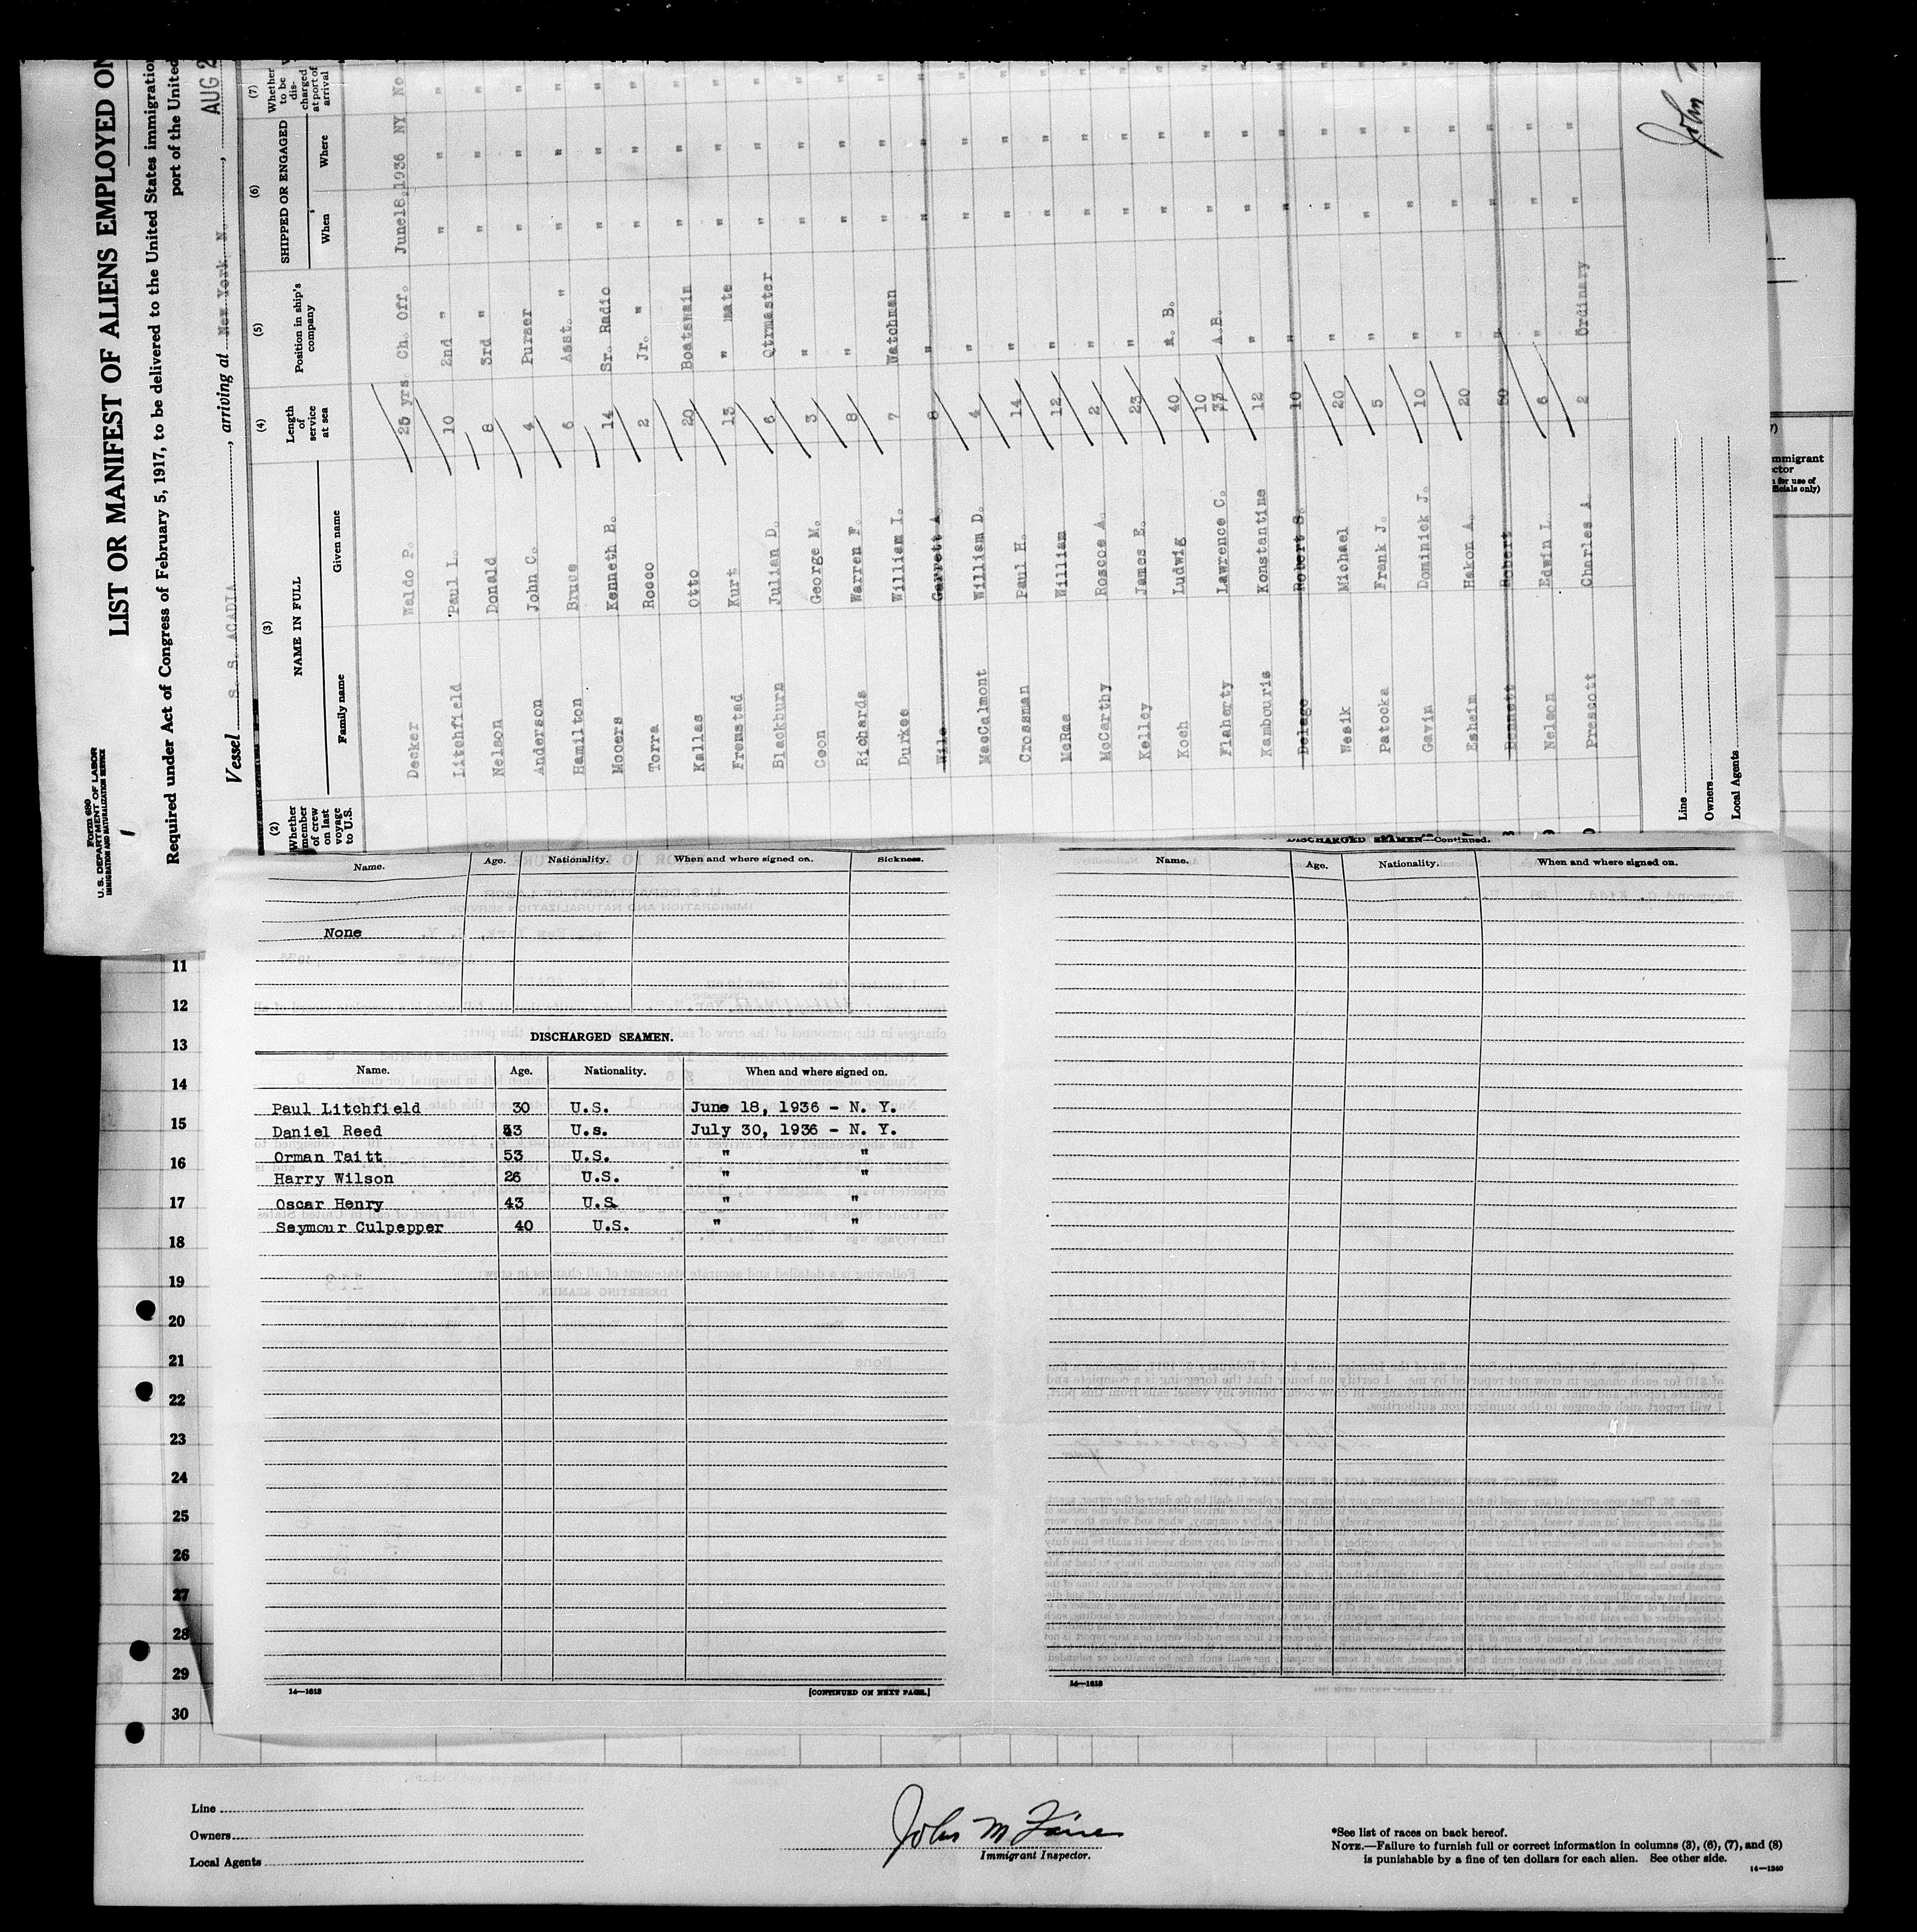 Form 680
U. S. DEPARTMENT OF LABOR
IMMIGRATION AND NATURALIZATION SERVICE
LIST OR MANIFEST OF ALIENS EMPLOYED ON
Required under Act of Congress of February 5, 1917, to be delivered to the United States immigration
port of the United
Vessel S. S. ACADIA, arriving at New York N., AUG 2
(2) (3) (4) (5) (6) (7)
Whether member of crew on last voyage to U.S.
NAME IN FULL
Family name Given name
Length of service at sea
Position in ship's company
SHIPPED OR ENGAGED
When Where
Whether to be discharged at port of arrival
Decker Waldo P. 25 yrs. Ch. Off. June18,1936 NY No
Litchfield Paul L. 10 2nd " " " "
Nelson Donald 8 3rd " " " "
Anderson John C. 4 Purser " " "
Hamilton Bruce 6 Asst. " " " "
Mooers Kenneth B. 14 Sr. Radio " " "
Torra Rocco 2 Jr. " " " "
Kallas Otto 20 Boatswain " " "
Fremstad Kurt 13 " mate " " "
Blackburn Julian D. 6 Qtrmaster " " "
Coon George M. 3 " " " "
Richards Warren F. 8 " " " "
Durkee William I. 7 Watchman " " "
Wile Garrett A. 8 " " " "
MacCalmont William D. 4 " " " "
Crossman Paul H. 14 " " " "
McRae William 12 " " " "
McCarthy Roscoe A. 2 " " " "
Kelley James E. 23 " " " "
Koch Ludwig 40 A. B. " " "
Flaherty Lawrence C. 10 33 A.B. " " "
Kambouris Konstantine 12 " " " "
Delago Robert S. 10 " " " "
Wesik Michael 20 " " " "
Patocka Frank J. 5 " " " "
Gavin Dominick J. 10 " " " "
Esheim Hakon A. 20 " " " "
Bennett Robert " " " "
Nelson Edwin L. 6 " " " "
Prescott Charles A. 2 Ordinary " " "
Line
Owners
Local Agents
John
mmigrant
ctor
n for use of
fficials only)
Name. Age. Nationality. When and where signed on. Sickness.
None
DISCHARGED SEAMEN.
Name. Age. Nationality. When and where signed on.
Paul Litchfield 30 U.S. June 18, 1936 - N. Y.
Daniel Reed 43 U.s. July 30, 1936 - N. Y.
Orman Taitt 53 U.S. " "
Harry Wilson 26 U.S. " "
Oscar Henry 43 U.S. " "
Seymour Culpepper 40 U.S. " "
14—1613
[CONTINUED ON NEXT PAGE.]
DISCHARGED SEAMEN—Continued.
Name. Age. Nationality. When and where signed on.
14—1613
11
12
13
14
15
16
17
18
19
20
21
22
23
24
25
26
27
28
29
30
Line
Owners
Local Agents
John M
Immigrant Inspector.
*See list of races on back hereof.
NOTE.—Failure to furnish full or correct information in columns (3), (6), (7), and (8)
is punishable by a fine of ten dollars for each alien. See other side.
14—1240